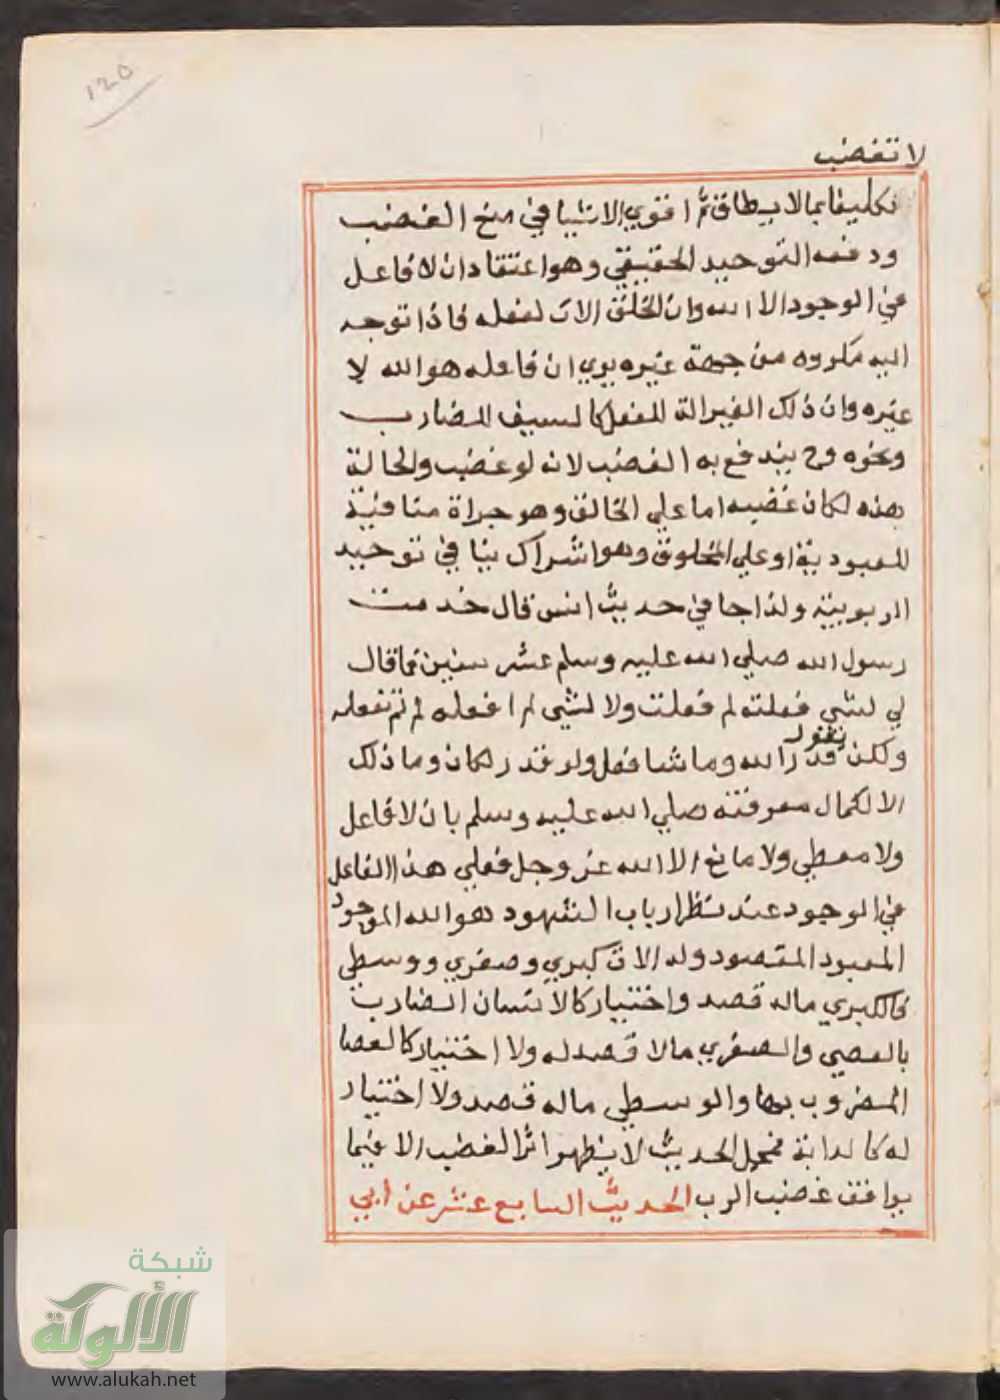 ١٢٥
لا تغضب
تكليفا بما لا يطاق ثم اقوي الاشيا في منع الغضب
ودفعه التوحيد الحقيقي وهو اعتقاد ان لا فاعل
في الوجود الا الله وان الخلق الات لفعله فاذا توجه
اليه مكروه من جهة غيره يري ان فاعله هو الله لا
غيره وان ذلك الغير الة للفعل كالسيف للضارب
ونحوه وح يندفع به الغضب لانه لو غضب والحالة
هذه لكان غضبه اما علي الخالق وهو جراة منافية
للعبودية او علي المخلوق وهو اشراك ينافي توحيد
الربوبية ولذا جا في حديث انس قال خدمت
رسول الله صلي الله عليه وسلم عشر سنين فما قال
لي لشي فعلته لم فعلت ولا لشي لم افعله لم لم تفعله
ولكن يقول قدر الله وما شا فعل ولو قدر لكان وما ذلك
الا لكمال معرفته صلي الله عليه وسلم بان لا فاعل
ولا معطي ولا مانع الا الله عز وجل فعلي هذا الفاعل
في الوجود عند نظار باب الشهود هو الله الموجود
المعبود المقصود وله الات كبري وصغري ووسطي
فالكبري ماله قصد واختيار كالانسان الضارب
بالعصي والصغري مالا قصد له ولا اختيار كالعصا
المضروب بها والوسطي ماله قصد ولا اختيار
له كالدابة فمحمل الحديث لا يظهر اثر الغضب الا فيما
يوافق غضب الرب الحديث السابع عشر عن ابي
شبكة
الألوكة
www.alukah.net